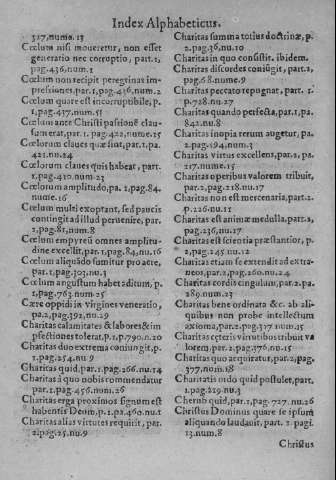 Index Alphabeticus.
327, nume. 13
Cœlum nisi moueretur, non esset
generatio nec corruptio, part. 1,
pag. 436, num. 1
Cœlum non recipit peregrinas im-
pressiones, par. 1, pag. 436, num. 2
Cœlum quare est incorruptibile, p.
1, pag. 437. num. 51
Cœlum ante Christi passionē clau-
sum erat, par. 1. pag. 422, nume. 15
Cœlorum claues quæ sint, par. 1, pa.
421. nu. 24
Cœlorum claues quis habeat, part.
1, pag. 420. num. 23
Cœlorum amplitudo, pa. 1, pag. 84.
nume. 16
Cœlum multi exoptant, sed paucis
contingit ad illud peruenire, par.
1, pag. 81, num. 8
Cœlum empyreū omnes amplitu-
dine excellit, par. 1, pag. 84, nu. 16
Cœlum aliquādo sumitur pro aere,
par. 1, pag. 303, nu. 3
Cœlum angustum habet aditum, p.
1, pag. 763, num. 25
Cære oppidi in virgines veneratio,
pa. 2, pag. 392, nu. 29
Charitas calamitates & labores & im
pfectiones tolerat, p. 1, p. 790. n. 20
Charitas duo extrema coniungit, p.
1, pag. 254. nu. 9
Charitas quid, par. 1. pag. 266. nu. 14
Charitas à quo nobis commendatur
part. 1. pag. 456. num. 26
Charitas erga proximos signum est
habentis Deum, p. 1. pa. 460. nu. 1
Charitas alias virtutes requirit, par.
2. pag. 25. nu. 9
Charitas summa totius doctrinæ, p.
2. pag. 36, nu. 10
Charitas in quo consistit. ibidem.
Charitas discordes coniūgit, part. 2,
pag. 68. nume. 9
Charitas peccato repugnat, part. 1.
p. 728. nu. 27
Charitas quando perfecta, par. 1, pa.
842. nu. 8
Charitas inopia rerum augetur, pa.
2. pag. 194, num. 3
Charitas virtus excellens, par. 2, pa.
217. nume. 15
Charitas operibus valorem tribuit,
par. 2, pag. 218. nu. 17
Charitas non est mercenaria, part. 2.
p. 226. nu. 11
Charitas est animæ medulla, part. 2,
pag. 236, nu. 17
Charitas est scientia præstantior, p.
2, pag. 245. nu. 12
Charitas etiam se extendit ad extra-
neos, par. 2, pag. 260. nu. 24
Charitas cordis cingulum, par. 2. pa.
289. num. 23
Charitas bene ordinata &c. ab ali-
quibus non probe intellectum
axioma, par. 2. pag. 317. num. 45
Charitas cęteris virtutibus tribuit va
lorem, par. 2. pag. 376. nu. 15
Charitas quo acquiratur, part. 2, pag.
377, num. 18
Charitatis ordo quid postulet, part.
1. pag. 219. nu. 3
Cherub quid, par. 1, pag. 727. nu. 26
Christus Dominus quare se ipsum
aliquando laudauit, part. 1. pagi.
13. num. 8
Christus